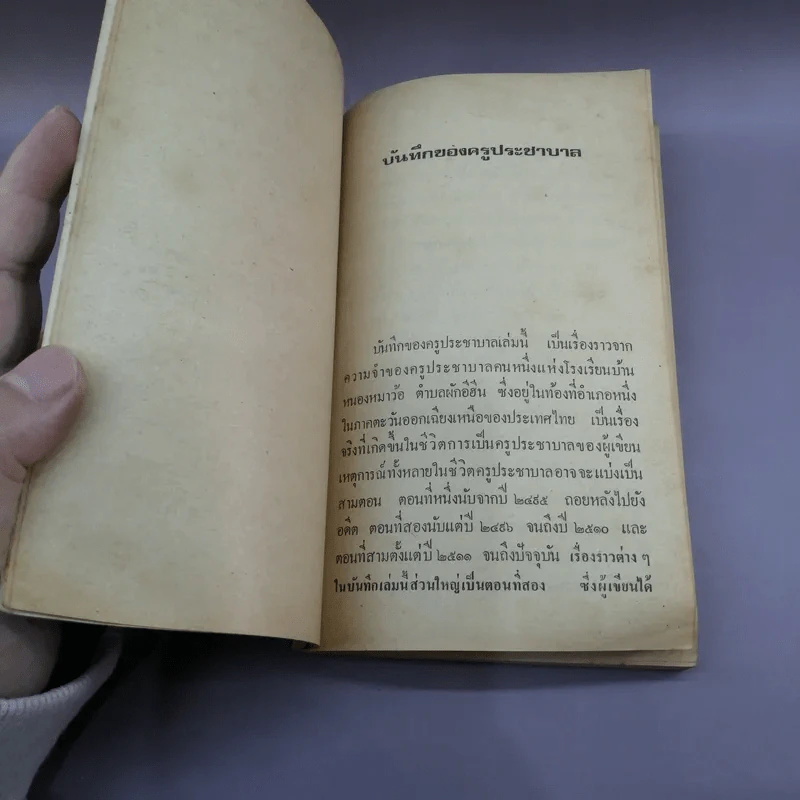 บันทึกของครูประชาบาล
บันทึกของครูประชาบาลเล่มนี้ เป็นเรื่องราวจาก
ความจำของครูประชาบาลคนหนึ่งแห่งโรงเรียนบ้าน
หนองหมาว้อ ตำบลผักอีฮีน ซึ่งอยู่ในท้องที่อำเภอหนึ่ง
ในภาคตะวันออกเฉียงเหนือของประเทศไทย เป็นเรื่อง
จริงที่เกิดขึ้นในชีวิตการเป็นครูประชาบาลของผู้เขียน
เหตุการณ์ทั้งหลายในชีวิตครูประชาบาลอาจจะแบ่งเป็น
สามตอน ตอนที่หนึ่งนับจากปี ๒๔๙๕ ถอยหลังไปยัง
อดีต ตอนที่สองนับแต่ปี ๒๔๙๖ จนถึงปี ๒๕๑๐ และ
ตอนที่สามตั้งแต่ปี ๒๕๑๑ จนถึงปัจจุบัน เรื่องราวต่าง ๆ
ในบันทึกเล่มนี้ส่วนใหญ่เป็นตอนที่สอง ซึ่งผู้เขียนได้